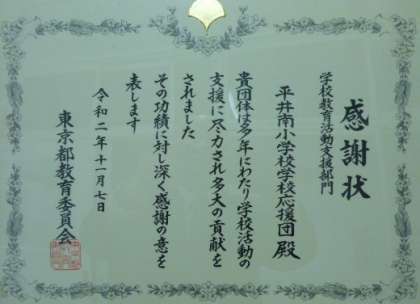 感謝状
学校教育活動支援部門
平井南小学校学校応援団殿
貴団体は多年にわたり学校活動の
支援に尽力され多大の貢献を
されました
その功績に対し深く感謝の意を
表します
令和二年十一月七日
東京都教育委員会